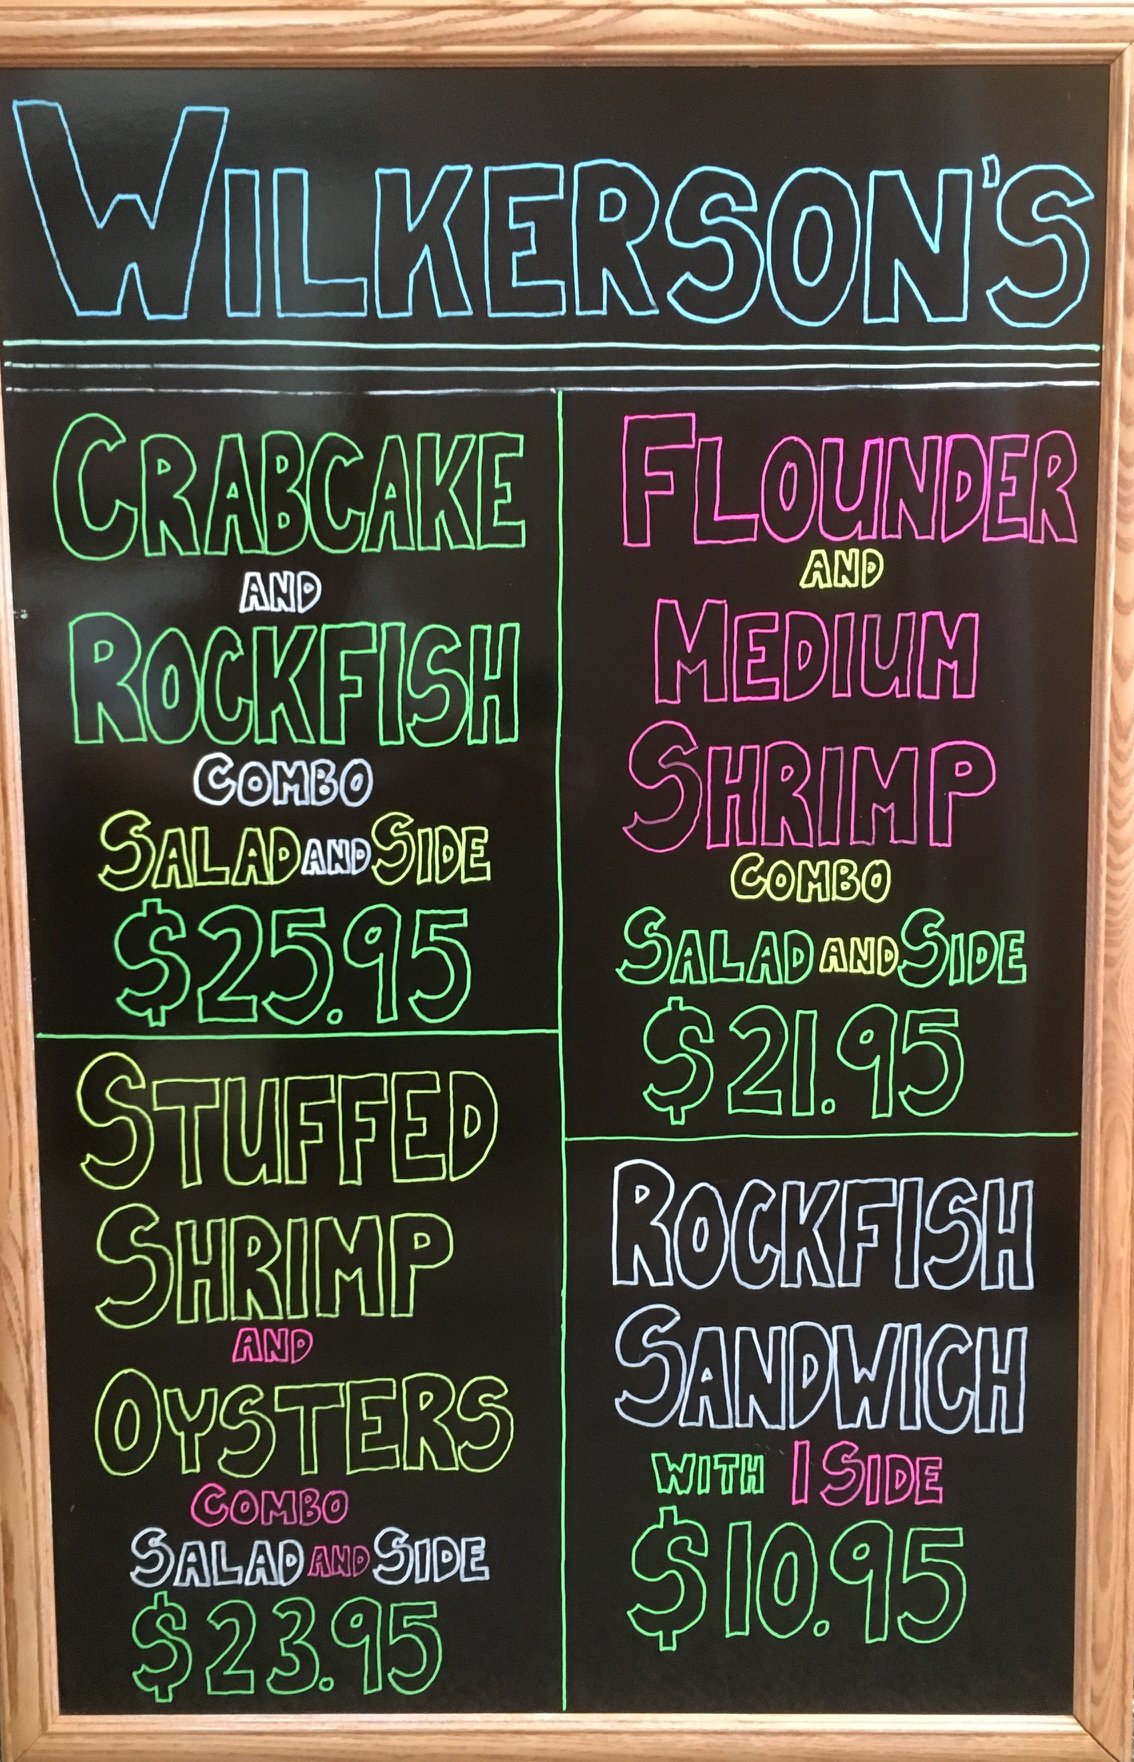 WILKERSON'S
CRABCAKE
AND
ROCKFISH
COMBO
SALAD AND SIDE
$25.95
STUFFED
SHRIMP
AND
OYSTERS
COMBO
SALAD AND SIDE
$23.95
FLOUNDER
AND
MEDIUM
SHRIMP
COMBO
SALAD AND SIDE
$21.95
ROCKFISH
SANDWICH
WITH 1 SIDE
$10.95